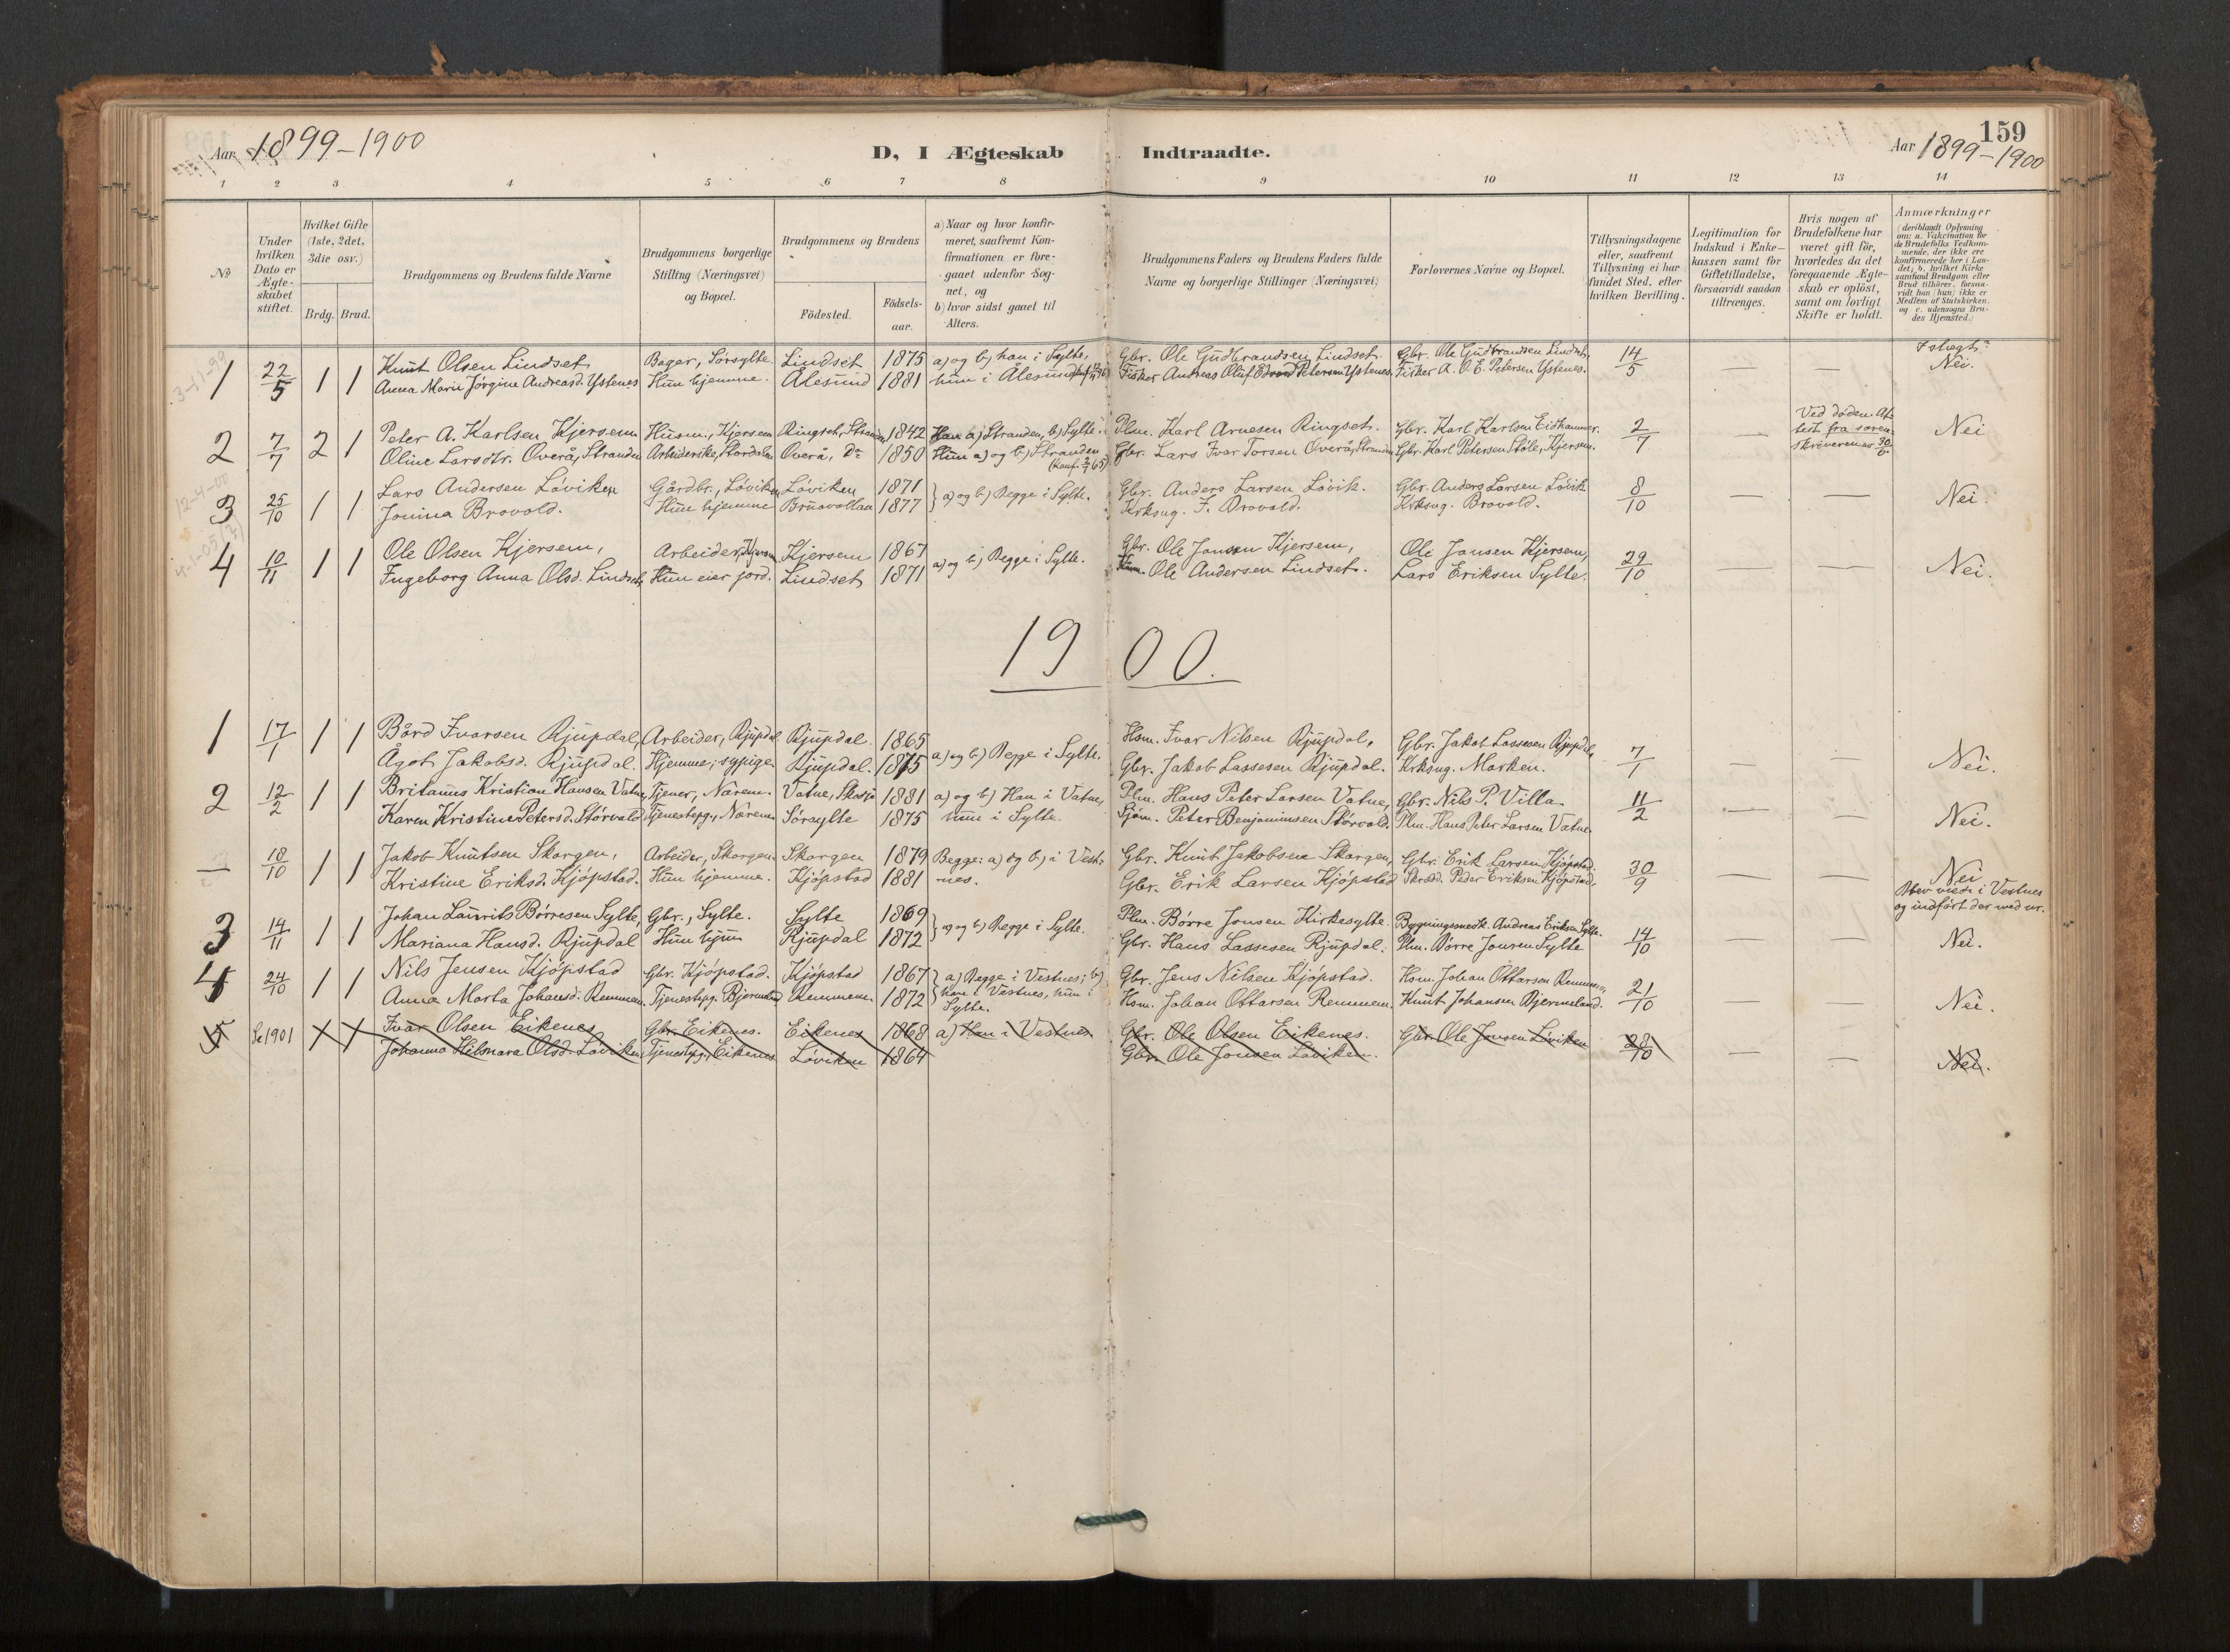 159
Aar 1899-1900
D, I Ægteskab Indtraadte.
Aar 1899-1900
1 2 3 4 5 6 7 8 9 10 11 12 13 14
No
Under hvilken Dato er Ægteskabet stiftet.
Hvilket Gifte (1ste, 2det, 3die osv.)
Brdg. Brud.
Brudgommens og Brudens fulde Navne
Brudgommens borgerlige Stilling (Næringsvei) og Bopæl.
Brudgommens og Brudens
Födested.
Födsels-aar.
a) Naar og hvor konfirmeret, saafremt Konfirmationen er foregaaet udenfor Sognet, og
b) hvor sidst gaaet til Alters.
Brudgommens Faders og Brudens Faders fulde Navne og borgerlige Stillinger (Næringsvei)
Forlovernes Navne og Bopæl.
Tillysningsdagene eller, saafremt Tillysning ei har fundet Sted, efter hvilken Bevilling.
Legitimation for Indskud i Enkekassen samt for Giftetilladelse, forsaavidt saadan tiltrænges.
Hvis nogen af Brudefolkene har været gift för, hvorledes da det foregaaende Ægteskab er oplöst, samt om lovligt Skifte er holdt.
Anmærkninger (deriblandt Oplysning om: a. Vakcination for de Brudefolks Vedkommende, der ikke ere konfirmerede her i Landet; b. hvilket Kirkesamfund Brudgom eller Brud tilhörer, forsaavidt han (hun) ikke er Medlem af Statskirken, og c. udensogns Brudes Hjemsted.)
1 22/5 1 1 Knut Olsen Lindset, Bager, Sørsylte. Lindset 1875 a) og b) han i Sylte, Gbr. Ole Gudbrandsen Lindset. Gbr. Ole Gudbrandsen Lindset. 14/5 — — I slegt? Nei.
Anna Marie Jörgine Andreasd. Ystenes Hun hjemme. Ålesund 1881 hun i Ålesund Fisker Andreas Oluf Edvard Petersen Ystenes. Fisker A. O. E. Petersen Ystenes.
2 7/7 2 1 Peter A. Karlsen Kjersem Husm., Kjersem Ringset, Stranden 1842 Han a) Stranden, b) Sylte. Plm. Karl Arnesen Ringset. Gbr. Karl Karlsen Eidhammer. 2/7 — Ved døden. Attest fra sorenskriveren av 30/6 Nei
Oline Larsdtr. Overå, Stranden Arbeiderske, Stordalen Overå, Do 1850 Hun a) og b) Stranden Gbr. Lars Ivar Torsen Overå, Stranden Gbr. Karl Petersen Støle, Kjersem.
3 25/10 1 1 Lars Andersen Löviken Gårdbr., Löviken Löviken 1871 a) og b) Begge i Sylte. Gbr. Anders Larsen Lövik. Gbr. Anders Larsen Lövik 8/10 — — Nei.
Jonina Brovold. Hun hjemme 1877 Krksng. J. Brovold. Krksng. Brovold.
4 10/11 1 1 Ole Olsen Kjersem, Arbeider, Kjersem Kjersem 1867 a) og b) Begge i Sylte. Gbr. Ole Jonsen Kjersem, Ole Jansen Kjersem, 29/10 — — Nei.
Ingeborg Anna Olsd. Lindset, Hun eier jord. Lindset 1871 Ole Andersen Lindset. Lars Eriksen Sylte.
1900.
1 17/1 1 1 Bård Ivarsen Rjupdal, Arbeider, Rjupdal Rjupdal 1865 a) og b) Begge i Sylte. Hsm. Ivar Nilsen Rjupdal, Gbr. Jakob Lassesen Rjupdal, 7/1 — — Nei.
Ågot Jakobsd. Rjupdal. Hjemme; sypige. Rjupdal. 1875 Gbr. Jakob Lassesen Rjupdal. Krksng. Marken.
2 12/2 1 1 Britanus Kristian Hansen Vatne, Tjener, Nærem. Vatne, Skodje 1881 a) og b) Han i Vatne, Plm. Hans Peter Larsen Vatne, Gbr. Nils P. Villa. 11/2 — — Nei.
Karen Kristine Petersd. Störvold Tjenestepg., Nærem Sörsylte 1875 hun i Sylte. Sjöm. Peter Benjaminsen Störvold. Plm. Hans Peter Larsen Vatne.
— 18/10 1 1 Jakob Knutsen Skorgen, Arbeider, Skorgen. Skorgen 1879 Begge: a) og b) i Vest- Gbr. Knut Jakobsen Skorgen, Gbr. Erik Larsen Kjöpstad. 30/9 — — Nei
Kristine Eriksd. Kjöpstad. Hun hjemme. Kjöpstad 1881 nes. Gbr. Erik Larsen Kjöpstad Skrædd. Peder Eriksen Kjöpstad. Blev viede i Vestnes og indført der med nr.
3 14/11 1 1 Johan Laurits Börresen Sylte, Gbr., Sylte. Sylte 1869 a) og b) Begge i Sylte. Plm. Börre Jonsen Kirkesylte. Bygningssnedk. Andreas Eriksen Sylte. 14/10 — — Nei.
Mariana Hansd. Rjupdal Hun hjem Rjupdal 1872 Gbr. Hans Lassesen Rjupdal. Plm. Börre Jonsen Sylte
4 24/10 1 1 Nils Jensen Kjöpstad Gbr. Kjöpstad. Kjöpstad 1867 a) Begge i Vestnes; b) Gbr. Jens Nilsen Kjöpstad. Hsm. Johan Ottarsen Remmem, 21/10 — — Nei.
Anna Marta Johansd. Remmem Tjenestepg. Remmem 1872 han i Vestnes, hun i Sylte. Hsm. Johan Ottarsen Remmem. Knut Johansen Bjermeland.
5 Se 1901 1 1 Ivar Olsen Eikenes Gbr. Eikenes. Eikenes 1868 a) Han i Vestnes Gbr. Ole Olsen Eikenes. Gbr. Ole Jonsen Löviken 28/10 — — Nei.
Johanna Hilmara Olsd. Löviken Tjenestepg., Eikenes Löviken 1864 Gbr. Ole Jonsen Löviken.